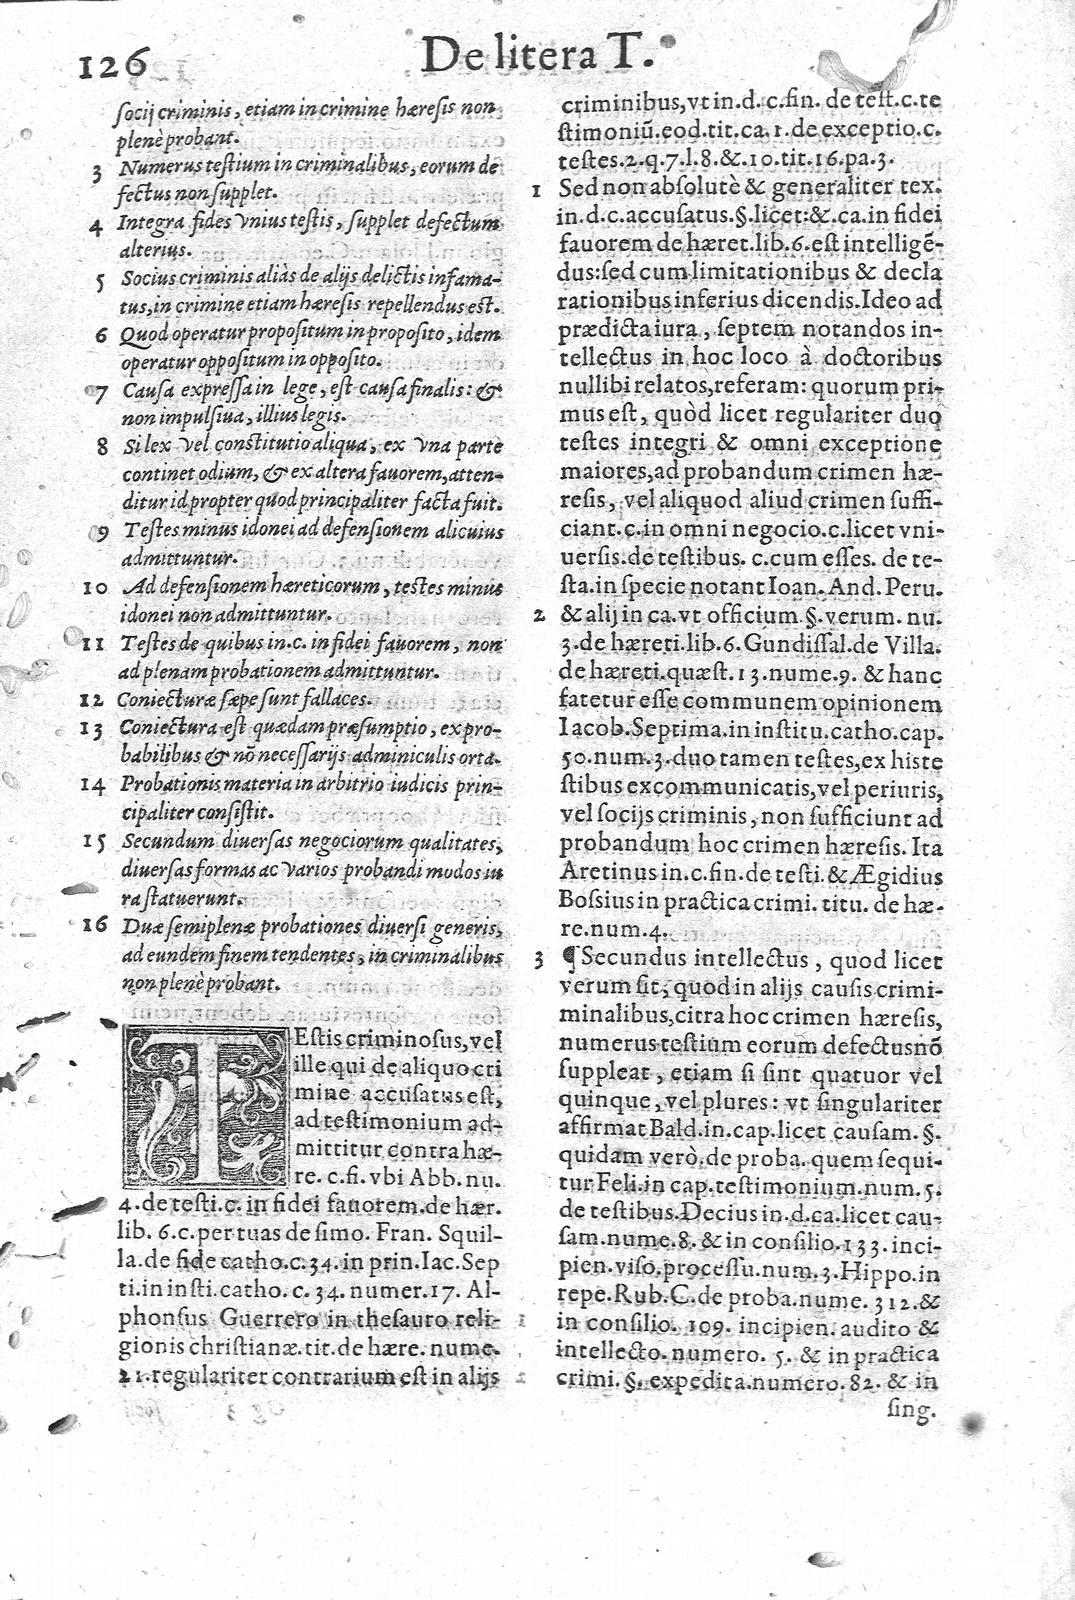 126
De litera T.
socij criminis, etiam in crimine hæresis non
plenè probant.
3 Numerus testium in criminalibus, eorum de
fectus non supplet.
4 Integra fides vnius testis, supplet defectum
alterius.
5 Socius criminis aliàs de alijs delictis infama-
tus, in crimine etiam hæresis repellendus est.
6 Quod operatur propositum in proposito, idem
operatur oppositum in opposito.
7 Causa expressa in lege, est causa finalis: &
non impulsiua, illius legis.
8 Si lex vel constitutio aliqua, ex vna parte
continet odium, & ex altera fauorem, atten-
ditur id propter quod principaliter facta fuit.
9 Testes minus idonei ad defensionem alicuius
admittuntur.
10 Ad defensionem hæreticorum, testes minus
idonei non admittuntur.
11 Testes de quibus in.c. in fidei fauorem, non
ad plenam probationem admittuntur.
12 Coniecturæ sæpe sunt fallaces.
13 Coniectura est quædam præsumptio, ex pro-
babilibus & nõ necessarijs adminiculis orta.
14 Probationis materia in arbitrio iudicis prin-
cipaliter consistit.
15 Secundum diuersas negociorum qualitates,
diuersas formas ac varios probandi modos iu
ra statuerunt.
16 Duæ semiplenæ probationes diuersi generis,
ad eundem finem tendentes, in criminalibus
non plenè probant.
TEstis criminosus, vel
ille qui de aliquo cri
mine accusatus est,
ad testimonium ad-
mittitur contra hæ-
re. c. fi. vbi Abb. nu.
4. de testi. c. in fidei fauorem. de hær.
lib. 6. c. per tuas de simo. Fran. Squil-
la. de fide catho. c. 34. in prin. Iac. Sep
ti. in insti. catho. c. 34. numer. 17. Al-
phonsus Guerrero in thesauro reli-
gionis christianæ. tit. de hære. nume.
21. regulariter contrarium est in alijs
criminibus, vt in. d. c. fin. de test. c. te
stimoniũ. eod. tit. ca. 1. de exceptio. c.
testes. 2. q. 7. l. 8. &. 10. tit. 16. pa. 3.
1 Sed non absolutè & generaliter tex.
in. d. c. accusatus. §. licet: &. ca. in fidei
fauorem de hæret. lib. 6. est intelligẽ-
dus: sed cum limitationibus & decla
rationibus inferius dicendis. Ideo ad
prædicta iura, septem notandos in-
tellectus in hoc loco à doctoribus
nullibi relatos, referam: quorum pri-
mus est, quòd licet regulariter duo
testes integri & omni exceptione
maiores, ad probandum crimen hæ-
resis, vel aliquod aliud crimen suffi-
ciant. c. in omni negocio. c. licet vni-
uersis. de testibus. c. cum esses. de te-
sta. in specie notant Ioan. And. Peru.
2 & alij in ca. vt officium. §. verum. nu.
3. de hæreti. lib. 6. Gundissal. de Villa.
de hæreti. quæst. 13. nume. 9. & hanc
fatetur esse communem opinionem
Iacob. Septima. in institu. catho. cap.
50. num. 3. duo tamen testes, ex histe
stibus excommunicatis, vel periuris,
vel socijs criminis, non sufficiunt ad
probandum hoc crimen hæresis. Ita
Aretinus in. c. fin. de testi. & Ægidius
Bossius in practica crimi. titu. de hæ-
re. num. 4.
3 ¶ Secundus intellectus, quod licet
verum sit, quod in alijs causis crimi-
minalibus, citra hoc crimen hæresis,
numerus testium eorum defectus nõ
suppleat, etiam si sint quatuor vel
quinque, vel plures: vt singulariter
affirmat Bald. in. cap. licet causam. §.
quidam verò. de proba. quem sequi-
tur Feli. in cap. testimonium. num. 5.
de testibus. Decius in. d. ca. licet cau-
sam. nume. 8. & in consilio. 133. inci-
pien. viso. processu. num. 3. Hippo. in
repe. Rub. C. de proba. nume. 312. &
in consilio. 109. incipien. audito &
intellecto. numero. 5. & in practica
crimi. §. expedita. numero. 82. & in
sing.